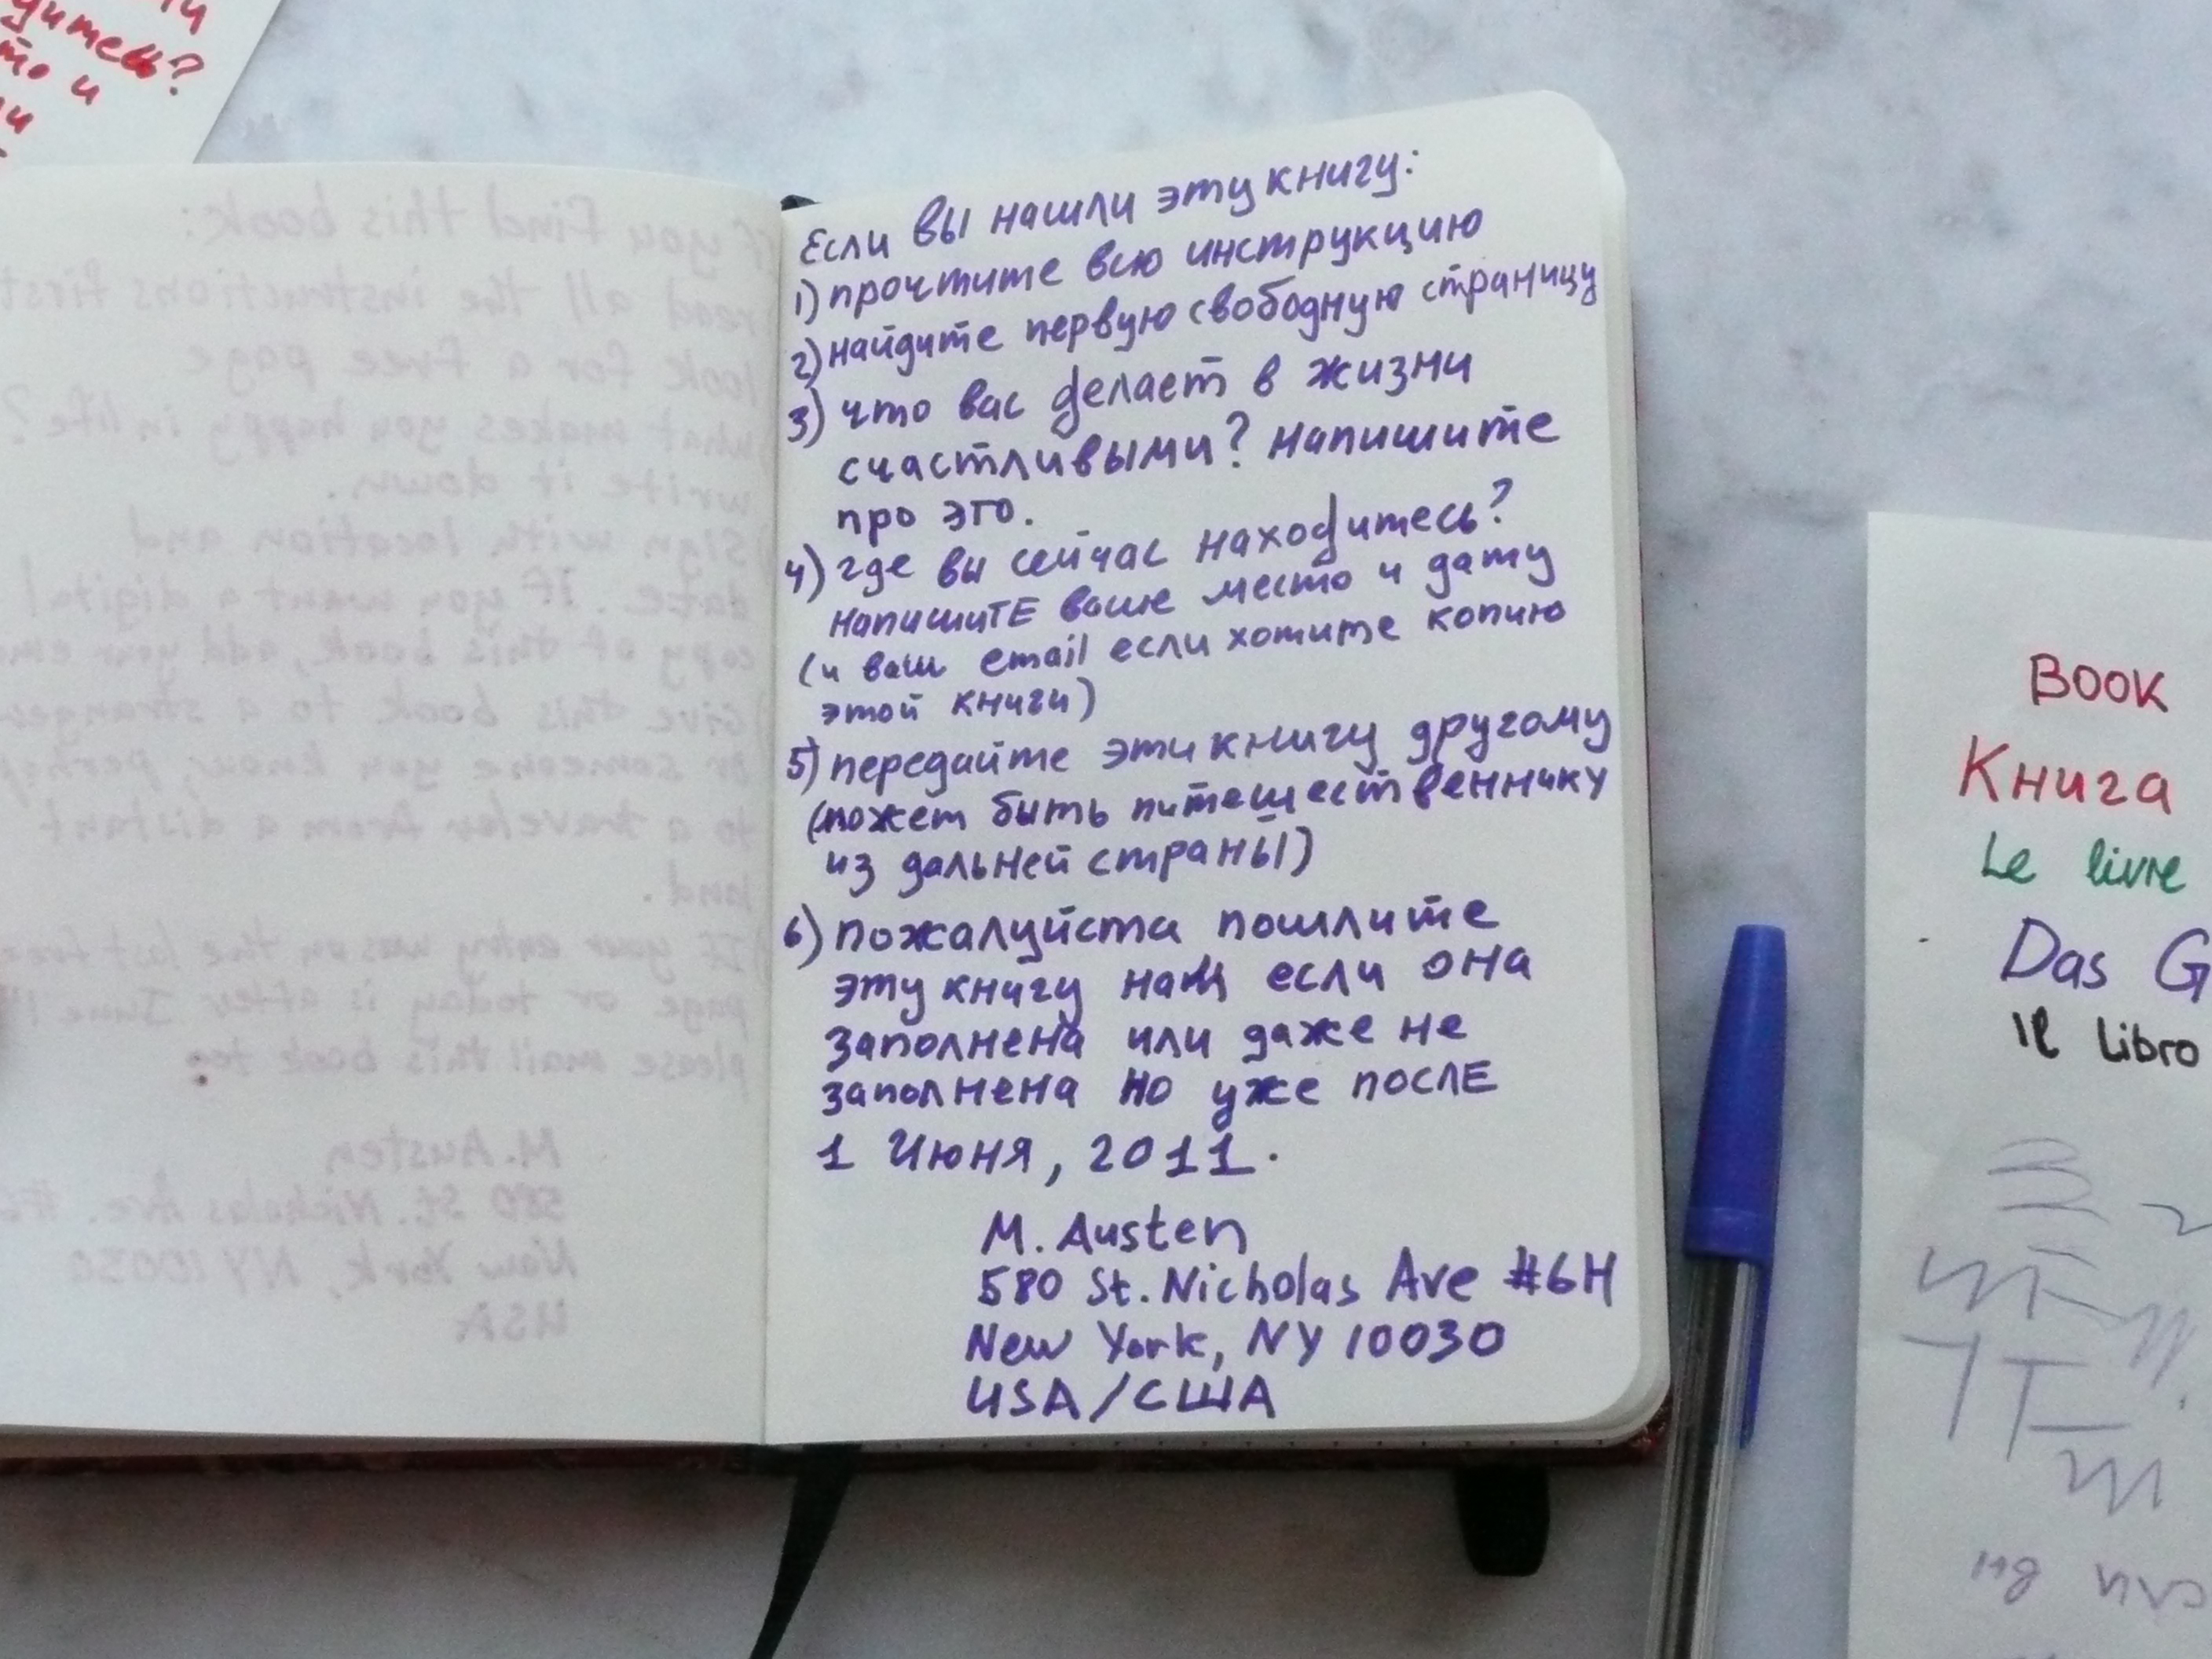 дитесь?
то и
If you find this book:
read all the instructions first
look for a free page
what makes you happy in life?
write it down.
sign with location and
date. If you want a digital
copy of this book, add your
Give this book to a stranger
or someone you know, perhaps
to a traveler from a distant
land.
If your entry was on the last free
page or today is after June 1
please mail this book to:
M. Austen
580 St. Nicholas Ave. #6
New York, NY 10030
USA
Если вы нашли эту книгу:
1) прочтите всю инструкцию
2) найдите первую свободную страницу
3) что вас делает в жизни
счастливыми? напишите
про это.
4) где вы сейчас находитесь?
напишитЕ ваше место и дату
(и ваш email если хотите копию
этой книги)
5) передайте эти книгу другому
(может быть питешественнику
из дальней страны)
6) пожалуйста пошлите
эту книгу нам если она
заполнена или даже не
заполнена но уже послЕ
1 Июня, 2011.
M. Austen
580 St. Nicholas Ave #6H
New York, NY 10030
USA/США
Book
Книга
Le livre
Das G
Il libro